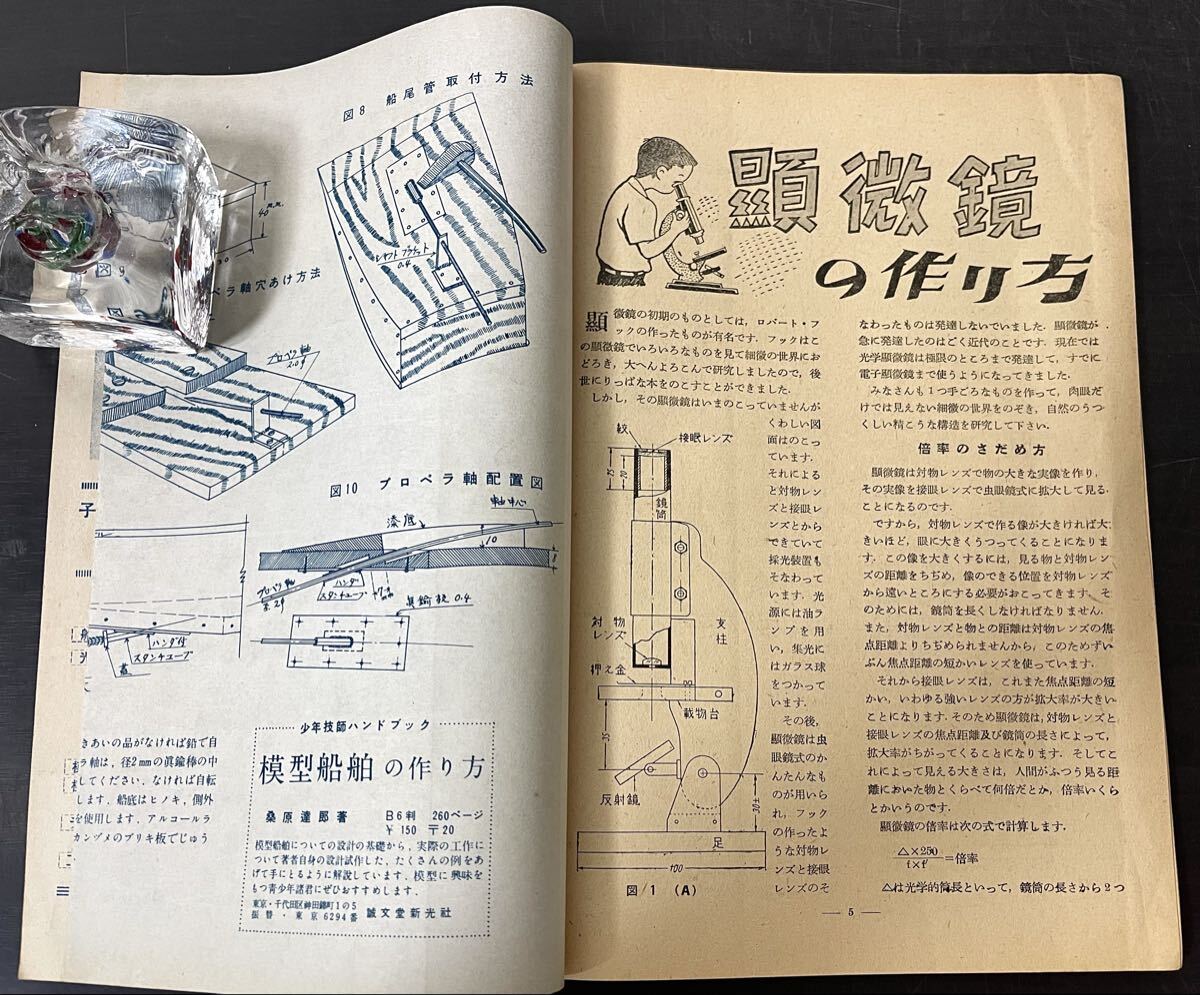 図8 船尾管取付方法
シャフトブラケット
0.4
40m.m.
図9
ペラ軸穴あけ方法
プロペラ軸
2.0φ
図10 プロペラ軸配置図
軸中心
漆底
10
8
プロペラ軸
ハンダ
スタンチューブ
眞鍮板 0.4
ハンダ付
スタンチューブ
蓋
子
きあいの品がなければ鉛で自
ラ軸は，径2mmの眞鍮棒の中
してください．なければ自転
します．船底はヒノキ，側外
を使用します．アルコールラ
カンヅメのブリキ板でじゅう
少年技師ハンドブック
模型船舶の作り方
桑原達郎著 B6判 260ページ
￥150 〒20
模型船舶についての設計の基礎から，実際の工作に
ついて著者自身の設計試作した，たくさんの例をあ
げて手にとるように解説しています．模型に興味を
もつ青少年諸君にぜひおすすめします．
東京・千代田区神田錦町1の5
振替・東京6294番 誠文堂新光社
顯微鏡
の作り方
顯微鏡の初期のものとしては，ロバート・フ
ックの作ったものが有名です．フックはこ
の顯微鏡でいろいろなものを見て細微の世界にお
どろき，大へんよろこんで研究しましたので，後
世にりっぱな本をのこすことができました．
しかし，その顯微鏡はいまのこっていませんが
くわしい図
面はのこっ
ています．
それによる
と対物レン
ズと接眼レ
ンズとから
できていて
採光装置も
そなわって
います．光
源には油ラ
ンプを用
い，集光に
はガラス球
をつかって
います．
その後，
顯微鏡は虫
眼鏡式のか
んたんなも
のが用いら
れ，フック
の作ったよ
うな対物レ
ンズと接眼
レンズのそ
絞
接眠レンズ
35
20
鏡筒
対物
レンズ
押え金
支柱
載物台
35
反射鏡
30±
足
100
図/1 (A)
なわったものは発達しないでいました．顯微鏡が
急に発達したのはごく近代のことです．現在では
光学顯微鏡は極限のところまで発達して，すでに
電子顯微鏡まで使うようになってきました．
みなさんも1つ手ごろなものを作って，肉眼だ
けでは見えない細微の世界をのぞき，自然のうつ
くしい精こうな構造を研究して下さい．
倍率のさだめ方
顯微鏡は対物レンズで物の大きな実像を作り，
その実像を接眼レンズで虫眼鏡式に拡大して見る
ことになるのです．
ですから，対物レンズで作る像が大きければ大
きいほど，眼に大きくうつってくることになりま
す．この像を大きくするには，見る物と対物レン
ズの距離をちぢめ，像のできる位置を対物レンズ
から遠いところにする必要がおこってきます．そ
のためには，鏡筒を長くしなければなりません．
また，対物レンズと物との距離は対物レンズの焦
点距離よりちぢめられませんから，このためずい
ぶん焦点距離の短かいレンズを使っています．
それから接眼レンズは，これまた焦点距離の短
かい，いわゆる強いレンズの方が拡大率が大きい
ことになります．そのため顯微鏡は，対物レンズと
接眼レンズの焦点距離及び鏡筒の長さによって，
拡大率がちがってくることになります．そしてこ
れによって見える大きさは，人間がふつう見る距
離においた物とくらべて何倍だとか，倍率いくら
とかいうのです．
顯微鏡の倍率は次の式で計算します．
△×250
f×f′ ＝倍率
△は光学的筒長といって，鏡筒の長さから2つ
— 5 —